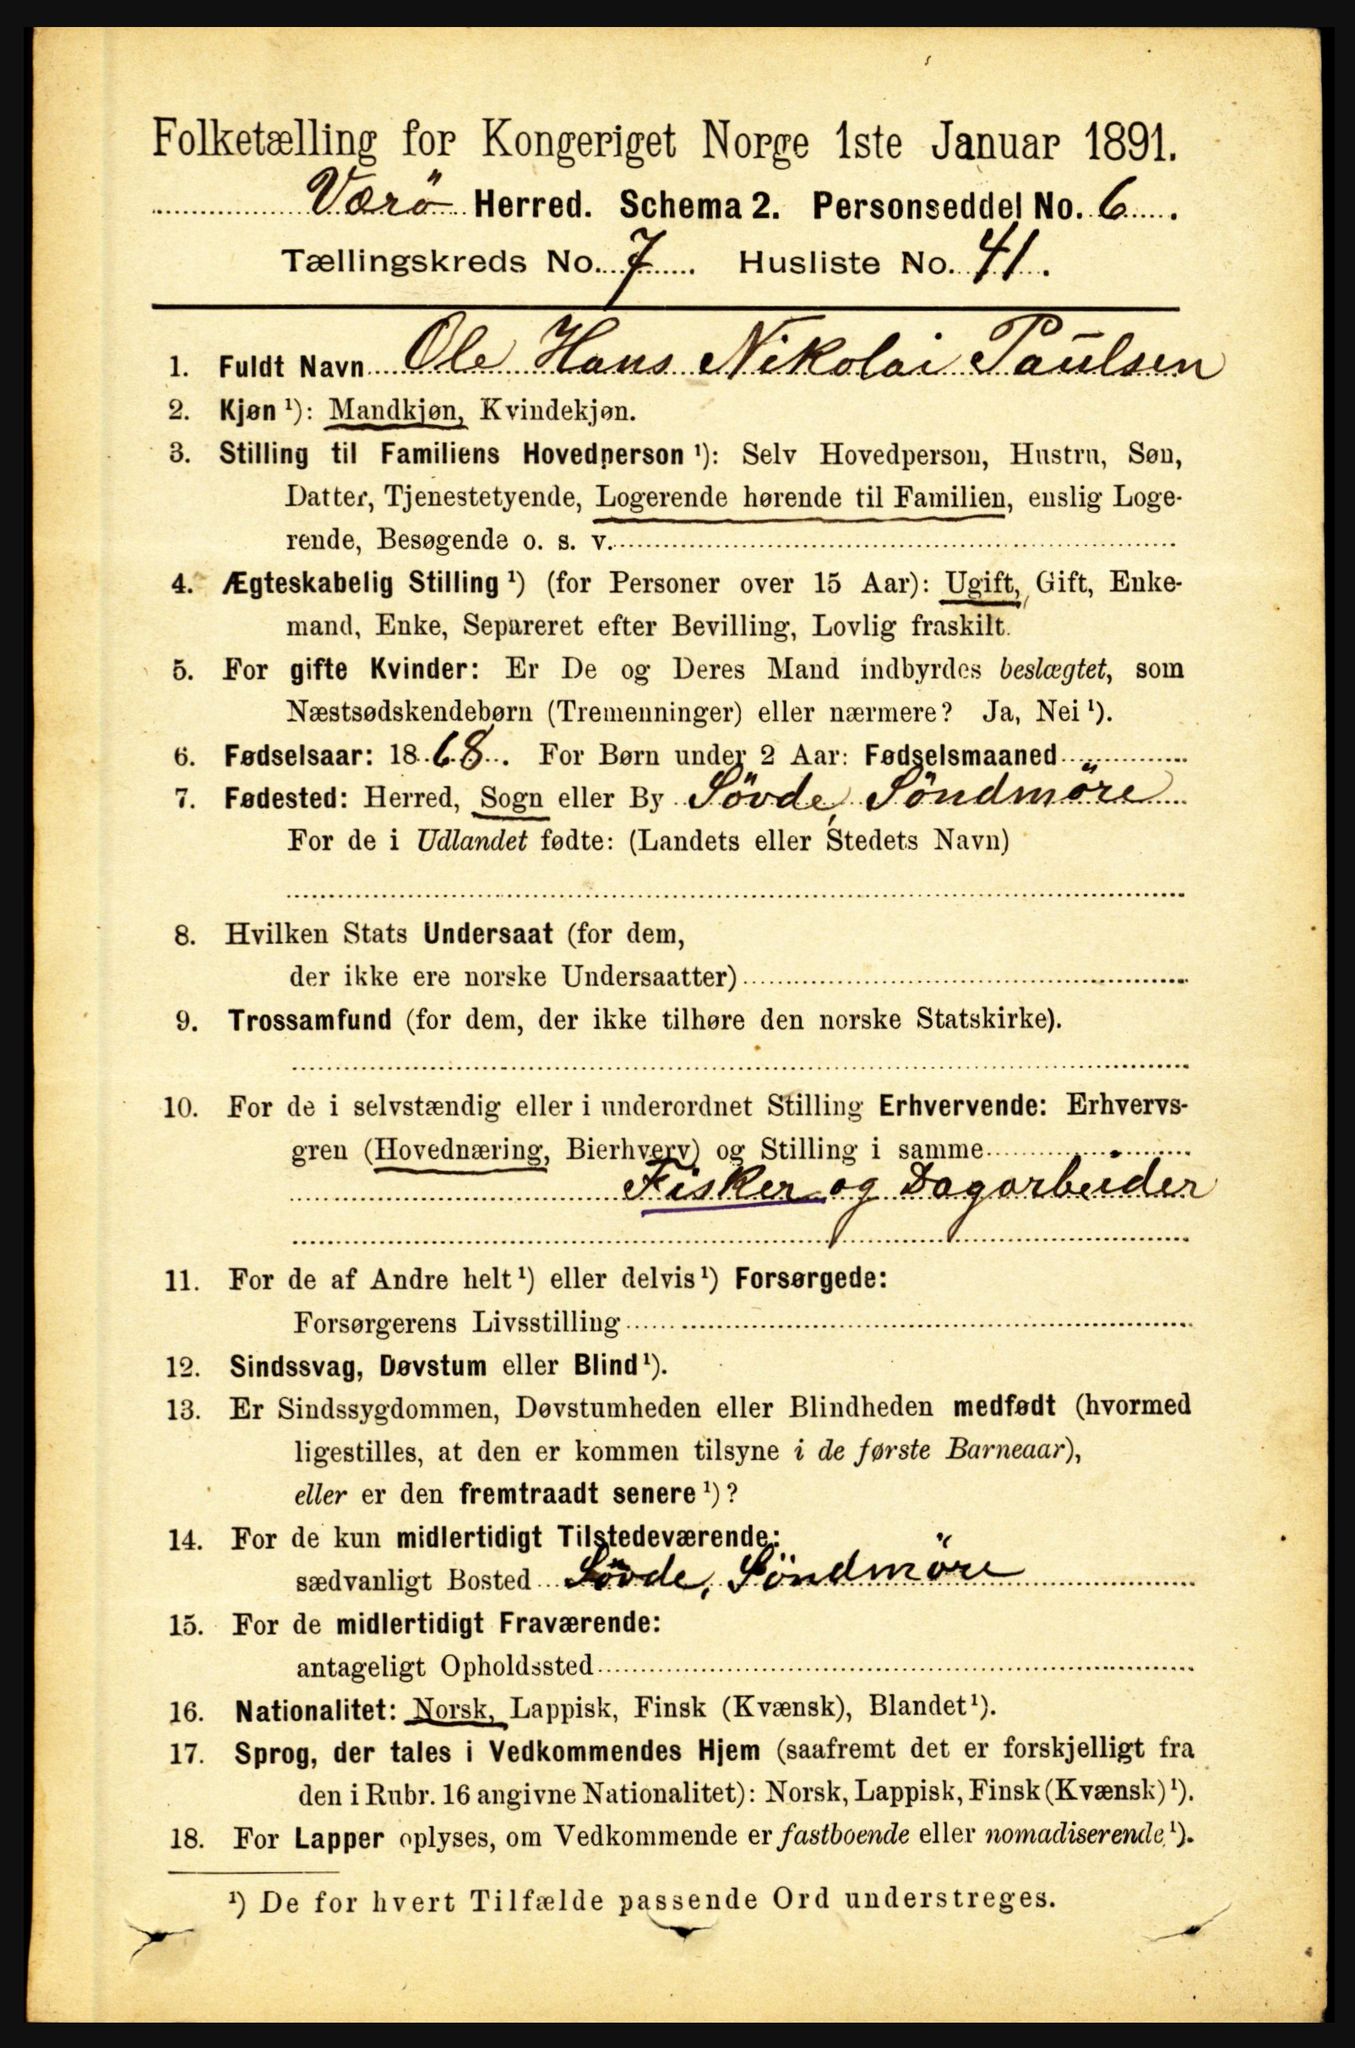 Folketælling for Kongeriget Norge 1ste Januar 1891.
Værö Herred. Schema 2. Personseddel No. 6.
Tællingskreds No. 7 Husliste No. 41.
1. Fuldt Navn Ole Hans Nikolai Paulsen
2. Kjøn ¹): Mandkjøn, Kvindekjøn.
3. Stilling til Familiens Hovedperson ¹): Selv Hovedperson, Hustru, Søn,
Datter, Tjenestetyende, Logerende hørende til Familien, enslig Loge-
rende, Besøgende o. s. v.
4. Ægteskabelig Stilling ¹) (for Personer over 15 Aar): Ugift, Gift, Enke-
mand, Enke, Separeret efter Bevilling, Lovlig fraskilt.
5. For gifte Kvinder: Er De og Deres Mand indbyrdes beslægtet, som
Næstsødskendebørn (Tremenninger) eller nærmere? Ja, Nei ¹).
6. Fødselsaar: 1868. For Børn under 2 Aar: Fødselsmaaned
7. Fødested: Herred, Sogn eller By Sövde, Söndmöre
For de i Udlandet fødte: (Landets eller Stedets Navn)
8. Hvilken Stats Undersaat (for dem,
der ikke ere norske Undersaatter)
9. Trossamfund (for dem, der ikke tilhøre den norske Statskirke).
10. For de i selvstændig eller i underordnet Stilling Erhvervende: Erhvervs-
gren (Hovednæring, Bierhverv) og Stilling i samme
Fisker og Dagarbeider
11. For de af Andre helt ¹) eller delvis ¹) Forsørgede:
Forsørgerens Livsstilling
12. Sindssvag, Døvstum eller Blind ¹).
13. Er Sindssygdommen, Døvstumheden eller Blindheden medfødt (hvormed
ligestilles, at den er kommen tilsyne i de første Barneaar),
eller er den fremtraadt senere ¹)?
14. For de kun midlertidigt Tilstedeværende:
sædvanligt Bosted Sövde, Söndmöre
15. For de midlertidigt Fraværende:
antageligt Opholdssted
16. Nationalitet: Norsk, Lappisk, Finsk (Kvænsk), Blandet ¹).
17. Sprog, der tales i Vedkommendes Hjem (saafremt det er forskjelligt fra
den i Rubr. 16 angivne Nationalitet): Norsk, Lappisk, Finsk (Kvænsk) ¹).
18. For Lapper oplyses, om Vedkommende er fastboende eller nomadiserende ¹).
¹) De for hvert Tilfælde passende Ord understreges.